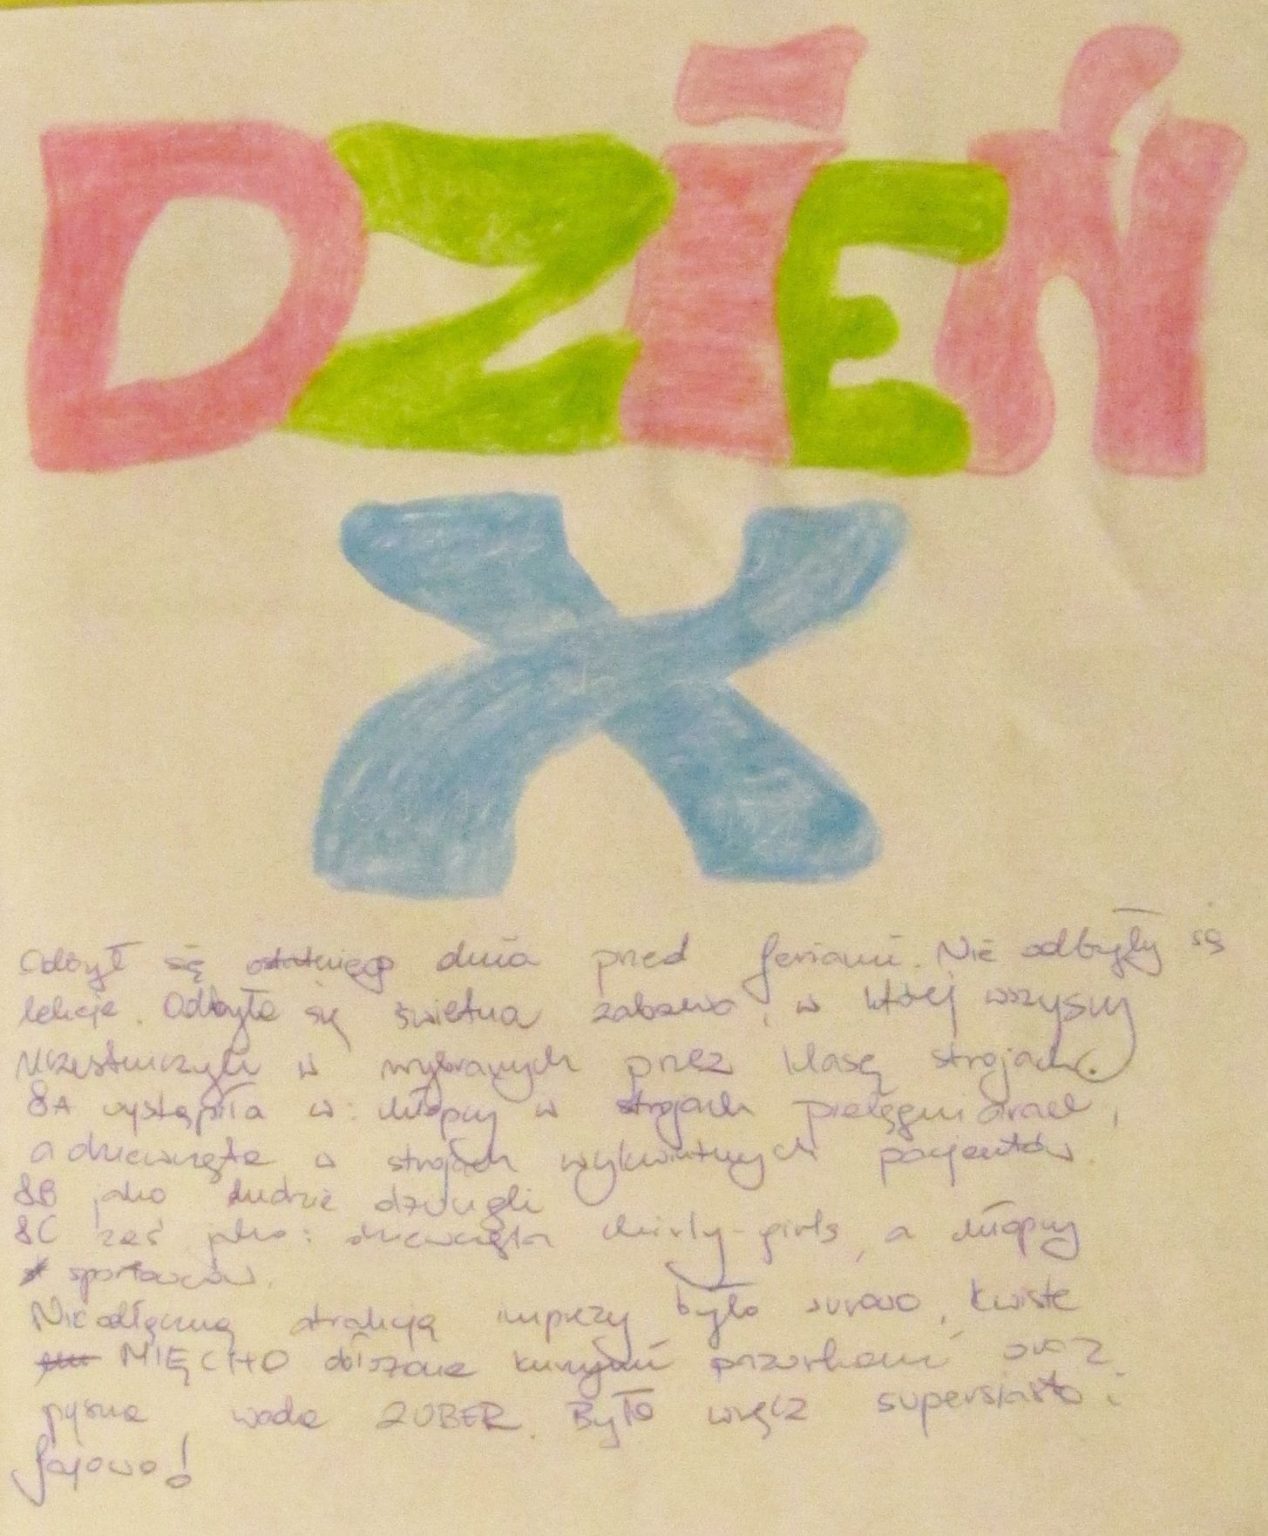 DZIEŃ
X
Odbył się ostatniego dnia przed feriami. Nie odbyły są
lekcje. Odbyła się świetna zabawa, w której wszyscy
uczestniczyli w wybranych przez klasę strojach.
8A wystąpiła w: chłopcy w strojach pielęgniarek,
a dziewczęta w strojach wykwintnych pacjentów.
8B jako ludzie dżungli
8C zaś jako: dziewczęta chirly-girls, a chłopcy
sportowców.
Nieodłączną atrakcją imprezy było surowo, krwiste
MIĘCHO obiszane kurzymi pazurkami oraz
pyszna woda ZUBER. Było wręcz supersiasto i
fajowo!